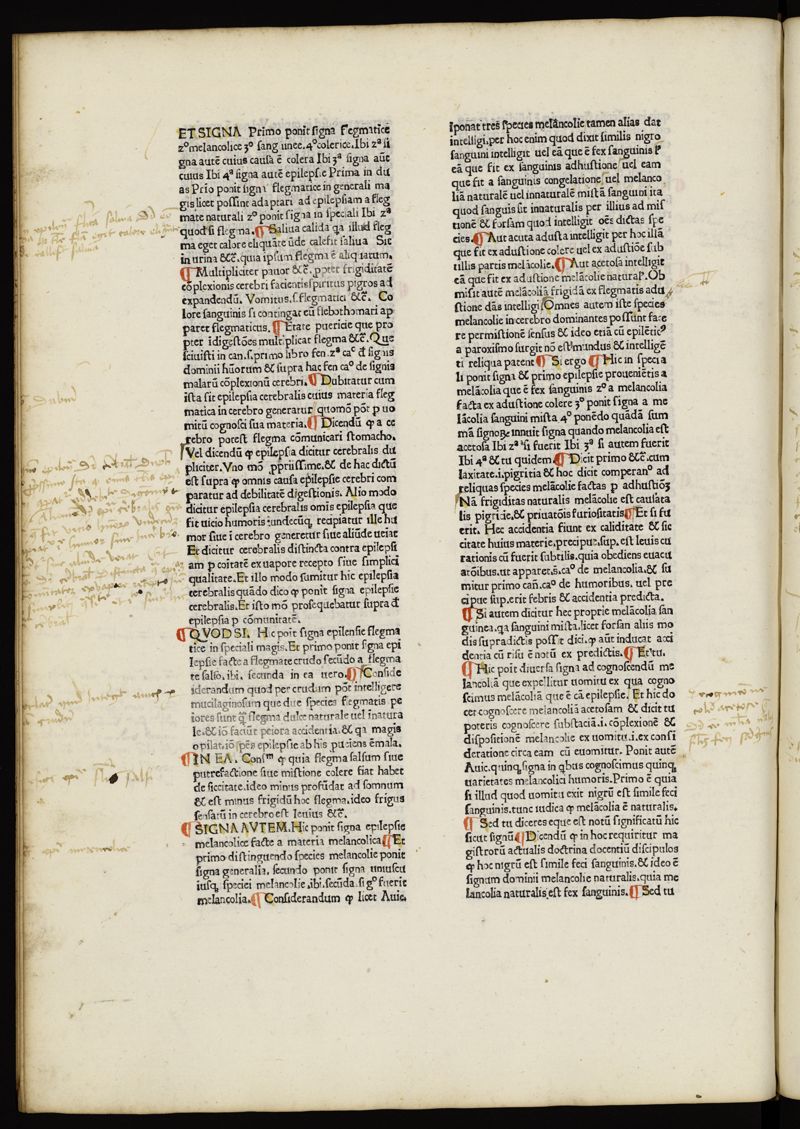 ET SIGNA Primo ponit signa flegmatice
zº melancolice 3º sang̅ unee. 4º colerice. Ibi zª si
gna aute̅ cuius causa e̅ colera Ibi 3ª signa aut̅
cuius Ibi 4ª signa aute̅ epilepsie Prima in du
as Prio ponit signa flegmatice in generali ma
gis licet possint adaptari ad epilepsiam a fleg
mate naturali zº ponit signa in speciali Ibi zª
quod si flegma. ¶ Saliua calida qa illud fleg
ma eget calore eliquate u̅de calefit saliua Sit
in urina &c̅. quia ipsum flegma e̅ aliquatum.
¶ Multipliciter pauor &c̅. propter frigiditate̅
co̅plexionis cerebri facientis spiritus pigros ad
expandendu̅. Vomitus. s. flegmatici &c̅. Co
lore sanguinis si contingat cu̅ flebothomari ap
paret flegmaticus. ¶ Etate puericie que pro
pter i̅digestio̅es multiplicat flegma &c̅. Que
sciuisti in can. s. primo libro fen. zª caº d̅ signis
dominii hu̅orum & supra hac fen caº de signis
malaru̅ co̅plexionu̅ cerebri. ¶ Dubitatur cum
ista sit epilepsia cerebralis cuius materia fleg
matica in cerebro generatur quomo̅ po̅t p uo
mitu̅ cognosci sua materia. ¶ Dicendu̅ ꝙ a ce
rebro potest flegma co̅municari stomacho.
Vel dicendu̅ ꝙ epilepsia dicitur cerebralis du
pliciter. Vno mo̅ propriissime. & de hac dictu̅
est supra ꝙ omnis causa epilepsie cerebri com
paratur ad debilitate̅ digestionis. Alio modo
dicitur epilepsia cerebralis omis epilepsia que
fit uicio humoris undecu̅q; recipiatur ille hu
mor siue i̅ cerebro generetur siue aliu̅de ueiat
Et dicitur cerebralis disti̅cta contra epilepsi
am p co̅itate̅ ex uapore recepto siue simplici
qualitate. Et illo modo sumitur hic epilepsia
cerebralis qua̅do dico ꝙ ponit signa epilepsie
cerebralis. Et isto mo̅ prosequebatur supra d̅
epilepsia p co̅munitate̅.
¶ QVOD SI. Hic poit signa epilensie flegma
tice in speciali magis. Et primo ponit signa epi
lepsie facte a flegmate crudo secu̅do a flegma
te salso. ibi. secunda in ea uero. ¶ Conside
iderandum quod per crudum po̅t intelligere
mucilaginosum que due species flegmatis pe
iores sunt q̅ flegma dulce naturale uel i̅natura
le. & io̅ faciu̅t peiora accidentia. & qa magis
opilat. io̅ spe̅s epilepsie ab his pueiens e̅ mala.
¶ IN EA. Consᵐ ꝙ quia flegma salsum siue
putrefactione siue mistione colere fiat habet
de siccitate. ideo minus profu̅dat ad somnum
& est minus frigidu̅ hoc flegma. ideo frigus
sensatu̅ in cerebro est leuius &c̅.
¶ SIGNA AVTEM. Hic ponit signa epilepsie
melancolice facte a materia melancolica ¶ Et
primo distinguendo species melancolie ponit
signa generalia. secundo ponit signa uniuscu
iusq; speciei melancolie. ibi. secu̅da. si gº fuerit
melancolia. ¶ Considerandum ꝙ licet Auic.
iponat tres species mela̅ncolie tamen alias dat
intelligi. per hoc enim quod dixit similis nigro
sanguini intelligit uel ea̅ que e̅ fex sanguinis l'
ea̅ que fit ex sanguinis adhustione uel eam
que fit a sanguinis congelatione uel melanco
lia̅ naturale̅ uel innaturale̅ mista̅ sanguini ita
quod sanguis sit innaturalis per illius ad mis
tione̅ & forsam quod intelligit oe̅s dictas spe
cies. ¶ Aut acuta adusta intelligit per hoc illa̅
que fit ex adustione colere uel ex adustio̅e sub
tillis partis mela̅colie. ¶ Aut acetosa intelligit
ea̅ que fit ex adustione mela̅colie natural'. Ob
misit aute̅ mela̅colia̅ frigida̅ ex flegmatis adu
stione da̅s intelligi Omnes autem iste species
melancolie in cerebro dominantes possunt face
re permistione̅ sensus & ideo etia̅ cu̅ epile̅ticꝰ
a paroxismo surgit no̅ est mundus & intellige̅
ti reliqua patent ¶ Si ergo ¶ Hic in specia
li ponit signa & primo epilepsie prouenie̅tis a
mela̅colia que e̅ fex sanguinis zº a melancolia
facta ex adustione colere 3º ponit signa a me
la̅colia sanguini mista 4º pone̅do quada̅ sum
ma̅ signoꝝ innuit signa quando melancolia est
acetosa Ibi zª si fuerit Ibi 3ª si autem fuerit
Ibi 4ª & tu quidem ¶ Dicit primo &c̅. cum
laxitate. i. pigritia & hoc dicit comperan̅º ad
reliquas species mela̅colie factas p adhustio̅ꝫ
Na̅ frigiditas naturalis mela̅colie est causata
lis pigritie. & priuatio̅is furiositatis ¶ Et si fu
erit. Hec accidentia fiunt ex caliditate & sic
citate huius materie. precipue. sup. est leuis eu
rationis cu̅ fuerit subtilis. quia obediens euacu
atio̅ibus. ut apparet. s̅. caº de melancolia. & su
mitur primo can̅. caº de humoribus. uel pre
cipue sup. erit febris & accidentia predicta.
¶ Si autem dicitur hec proprie mela̅colia san
guinea. qa sanguini mista. licet forsan aliis mo
dis supradictis posse̅t dici. ꝙ au̅t inducat acci
dentia cu̅ risu e̅ notu̅ ex predictis. ¶ Et tu.
¶ Hic poit diuersa signa ad cognoscendu̅ me
lancolia̅ que expellitur uomitu ex qua cogno
scimus mela̅colia̅ que e̅ ca̅ epilepsie. Et hic do
cet cognoscere melancolia̅ acetosam & dicit tu
poteris cognoscere substa̅cia̅. i. co̅plexione̅ &
dispositione̅ melancolie ex uomitu. i. ex consi
deratione circa eam cu̅ euomitur. Ponit aute̅
Auic. quinq; signa in qbus cognoscimus quinq;
uarietates melancolici humoris. Primo e̅ quia
si illud quod uomitu exit nigru̅ est simile feci
sanguinis. tunc iudica ꝙ mela̅colia e̅ naturalis.
¶ Sed tu diceres eque est notu̅ significatu̅ hic
sicut signu̅ ¶ Dicendu̅ ꝙ in hoc requiritur ma
gistroru̅ actualis doctrina docentiu̅ discipulos
ꝙ hoc nigru̅ est simile feci sanguinis. & ideo e̅
signum dominii melancolie naturalis. quia me
lancolia naturalis est fex sanguinis. ¶ Sed tu